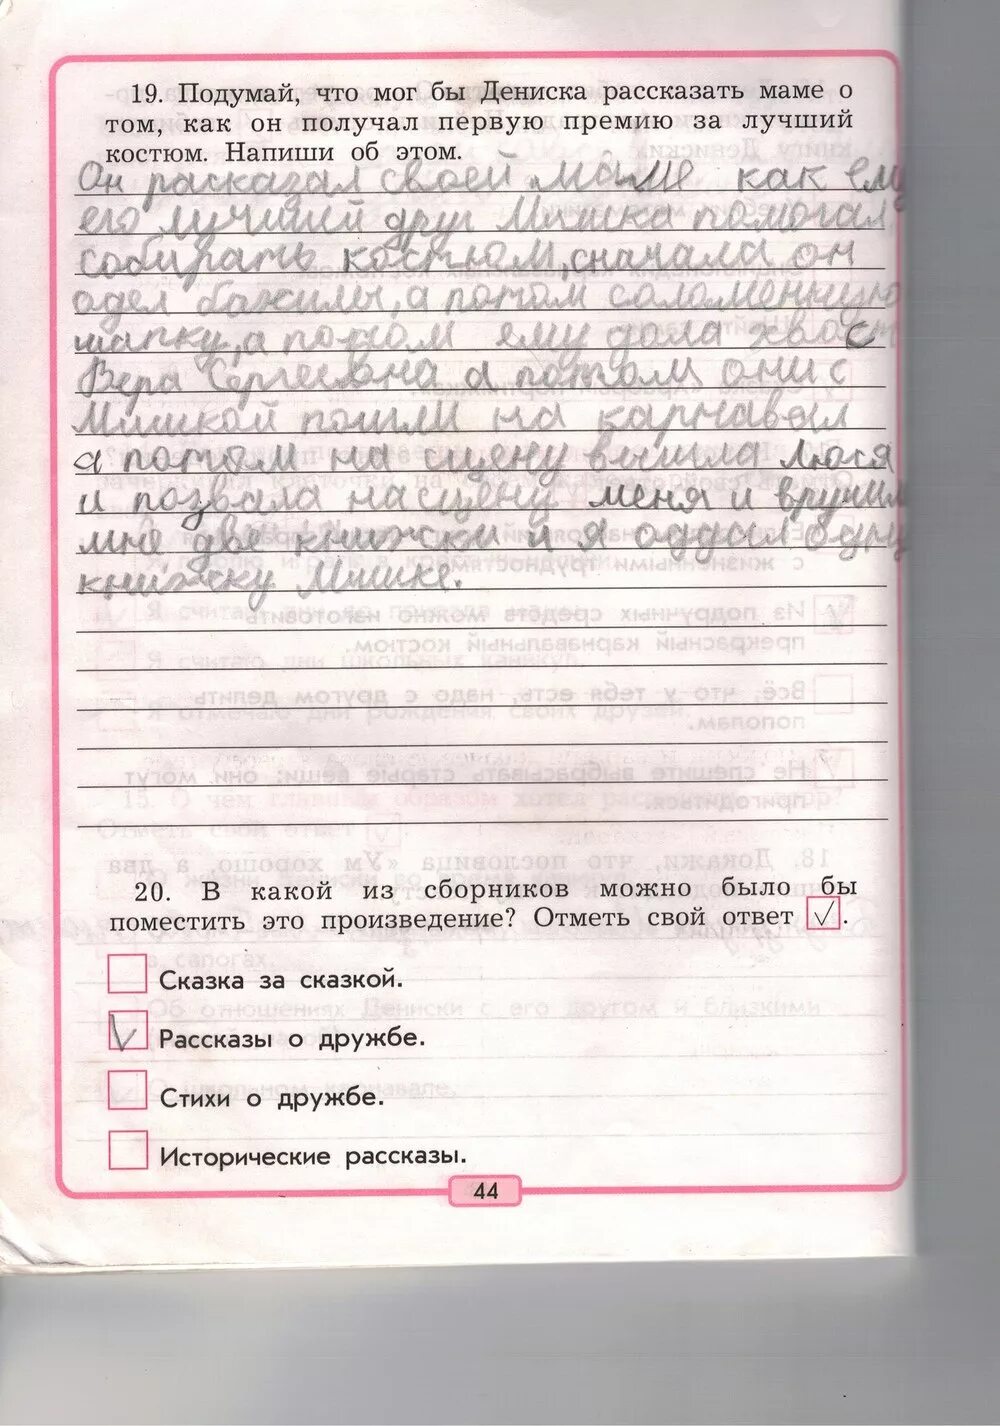 19. Подумай, что мог бы Дениска рассказать маме о
том, как он получал первую премию за лучший
костюм. Напиши об этом.
Он расказал своей маме как ему
его лучший друг Мишка помогал
собирать костюм, сначала он
одел бахилы, а потом соломенную
шапку, а потом ему дала хвост
Вера Сергеевна а потом они с
Мишкой пошли на карнавал
а потом на сцену вышла люся
и позвала на сцену меня и вручили
мне две книжки и я отдал одну
книжку Мишке.
20. В какой из сборников можно было бы
поместить это произведение? Отметь свой ответ ✓.
Сказка за сказкой.
Рассказы о дружбе.
Стихи о дружбе.
Исторические рассказы.
44